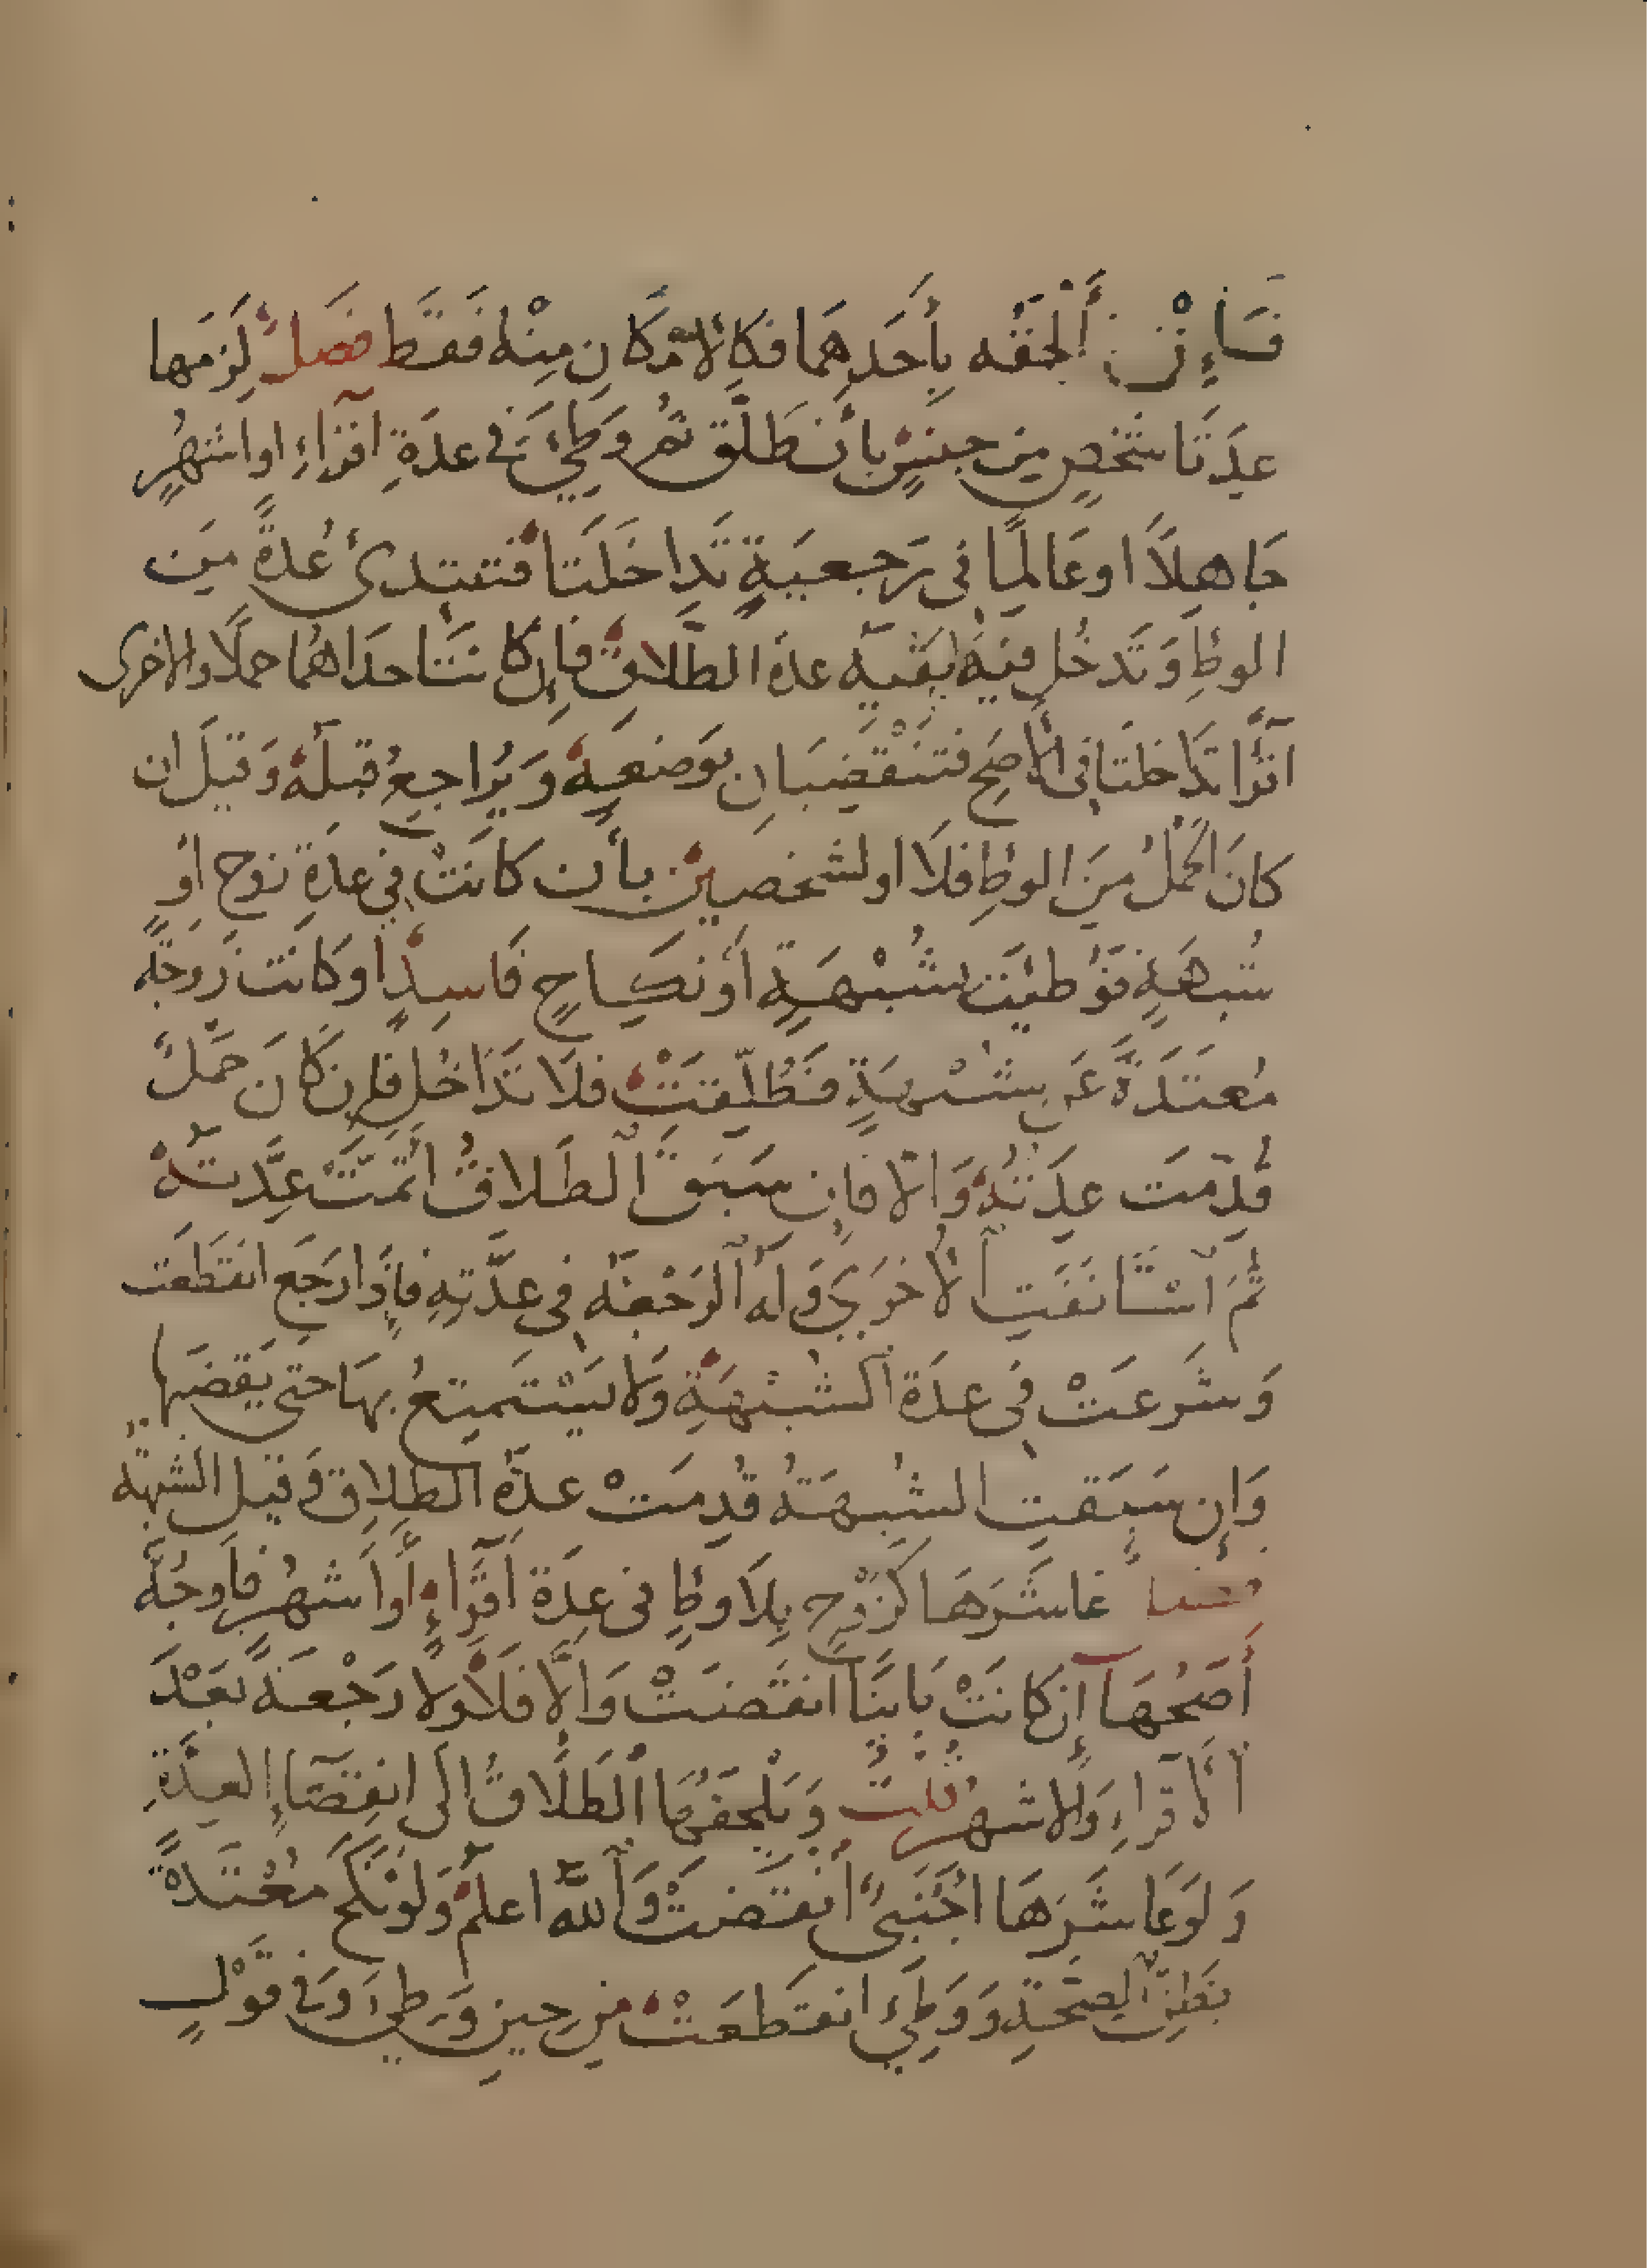 فَإِنْ أَلْحَقَه بِأَحَدِهِمَا فكالامْكَانِ مِنْهُ فَقَط فَصَلٌ لَزِمَها
عِدَتَا شَخْصٍ مِن جِنسٍ بأن طَلَّق ثمَّ وَطِيَ فى عدَةِ اقرَاءٍ او اشهُرٍ
جَاهِلاً او عَالِمًا فى رَجعيةٍ تَدَاخَلَتَا فتبتدئ عُدةً مِن
الوطِا وَتَدخُل فيهِ بَقيه عدة الطَّلاق فاِن كانتَا حدَاهُما حملًا والاخرى
اقرَّا تدَاخلتا فى الأصَحِ فتَنْقَضِيَانِ بوَضعِهِ وَيُرَاجِعُ قبلَهُ وَقيلَ ان
كانَ الحملُ مِنَ الوطِا فلَا او لشخصينِ بأن كانَتْ فِى عدَةِ زوجِ او
شُبهَةٍ فوُطئَت بشُبْهَةٍ أو نكاحٍ فَاسِدٍ او كانت زَوجَةً
مُعتَدَةً عَن شُبْهَةٍ فَطُلِّقَتْ فلَا تَدَاخُلِ فإن كَانَ حَملٌ
قُدِّمَت عِدَتُهُ وَالا فإن سَبَقَ الطَلاقُ اتمَّتْ عِدَّتهُ
ثُمَ اسْتَانَفَتِ الأخرَى وَلَه الرَجْعَه فى عدَّتِهِ فإذَا رَجَعَ انقَطَعَت
وَشَرعَتْ فى عدَة الشبْهَةِ وَلا يَسْتَمتِعُ بهَا حَتى يَقضيَها
وَإن سَبَقتِ الشُبهَتهُ قُدِمَتْ عدةُ الطلاقِ وَقيل الشبهة
عاشَرَهَا كزَوْجٍ بِلَا وَطٍا فى عِدَة أقرَاءٍ أو أشهُرٍ فاوجُهٌ
أصَحُهَا إن كانَتْ بَاينًا انقَضَتْ وَالّا فلَا وَلا رَجْعَةً بَعْدَ
الأقراءِ وَالاشهرِ قلت وَيَلْحَقُهَا الطَلَاقُ الَى انقِضَاءِ العِدَّةِ
وَلوعَا شَرَهَا اجْنَبىٌ انقَضَتْ وَاللهُ اعلمُ وَلوْ نَكَحَ مُعْتَدةً
بظَنِّ الصِحَةِ وَوَطِىَ انقَطَعَتْ مِن حِينِ وَطِىَ وَفى قَوْلٍ